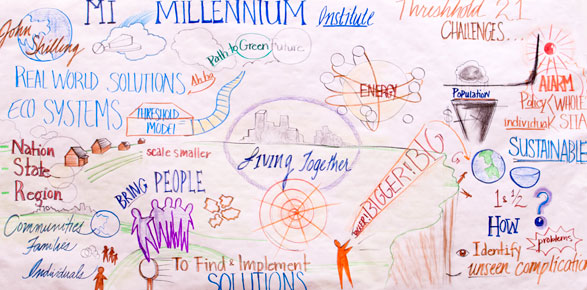 MI MILLENNIUM Institute
Threshhold 21
John Shilling
Path to Green Future
CHALLENGES...
REAL WORLD SOLUTIONS
ECO SYSTEMS
THRESHOLD MODEL
ENERGY
Population
ALARM
Policy (WHOLE
individual
SUSTAINABLE
Nation
State
Region
scale smaller
Living Together
BIGGER! BIG
BRING PEOPLE
Communities
Families
Individuals
1 & 1/2
HOW ?
problems
Identify
unseen complication
To Find & Implement
SOLUTIONS